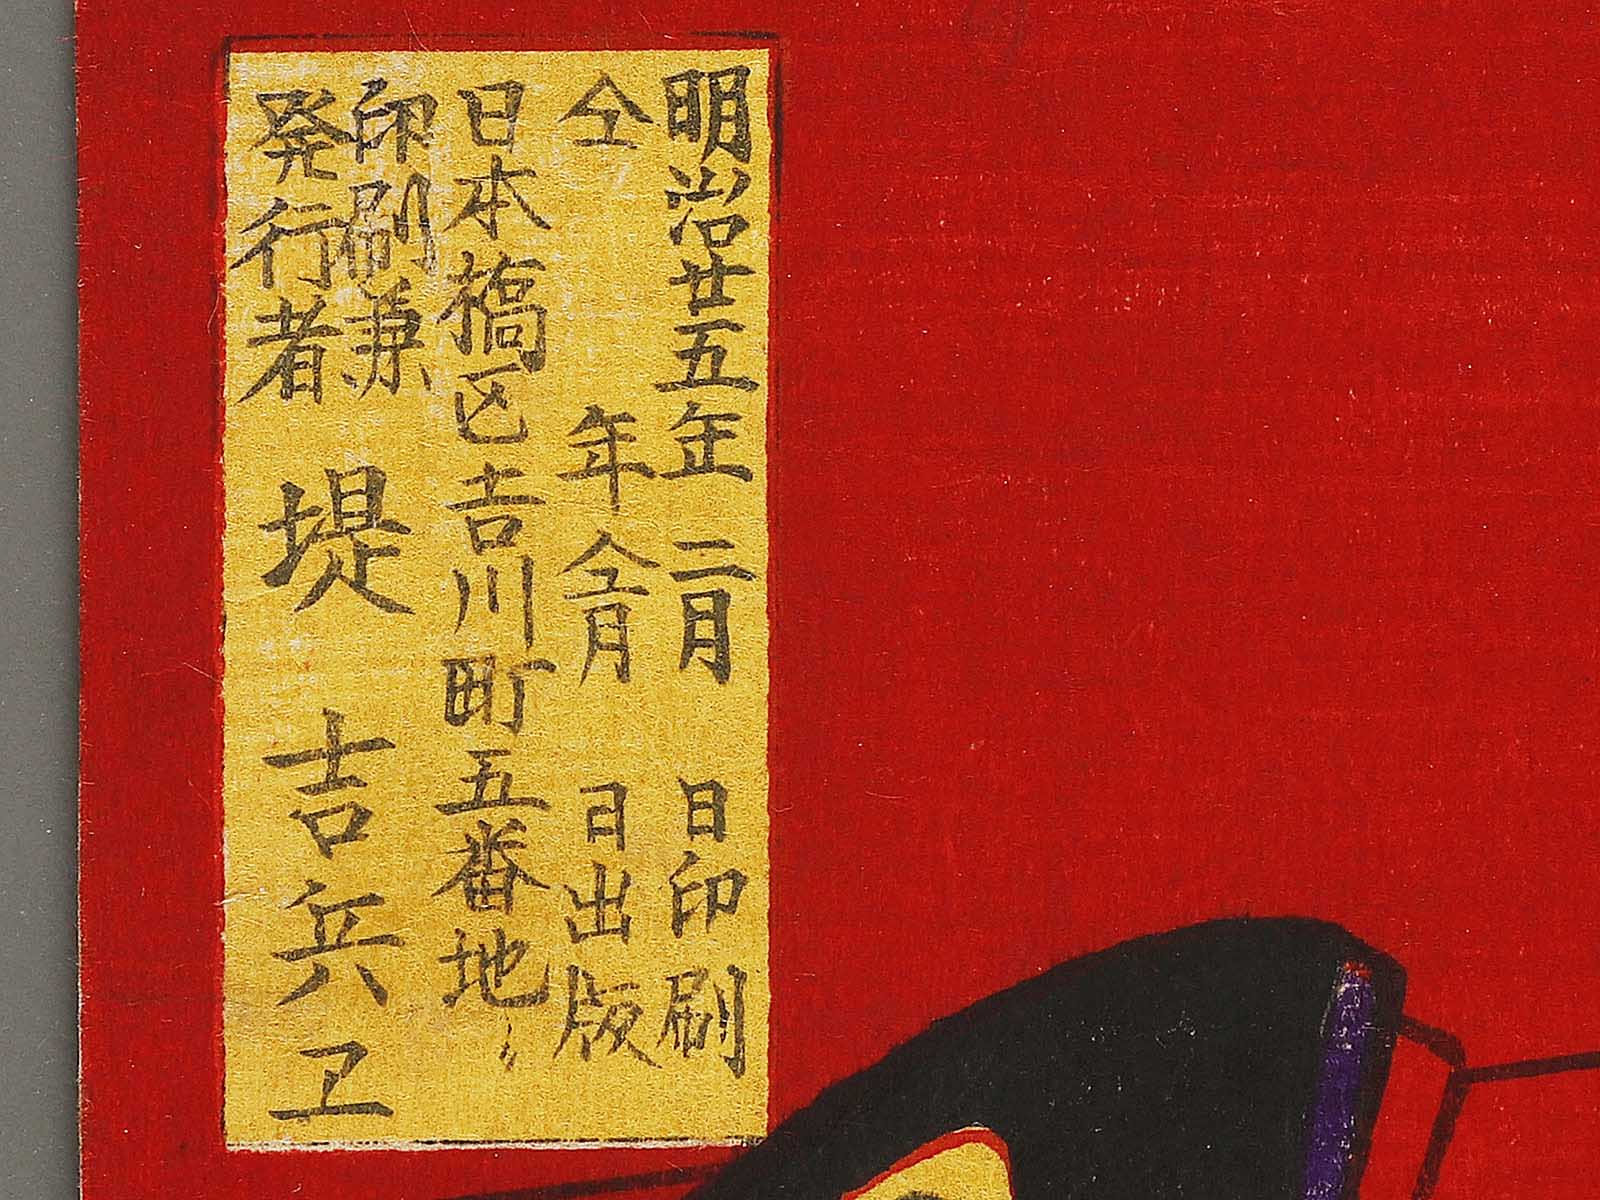 明治廿五年二月 日印刷
仝 年仝月 日出版
日本橋区吉川町五番地
印刷兼
発行者 堤 吉兵ヱ